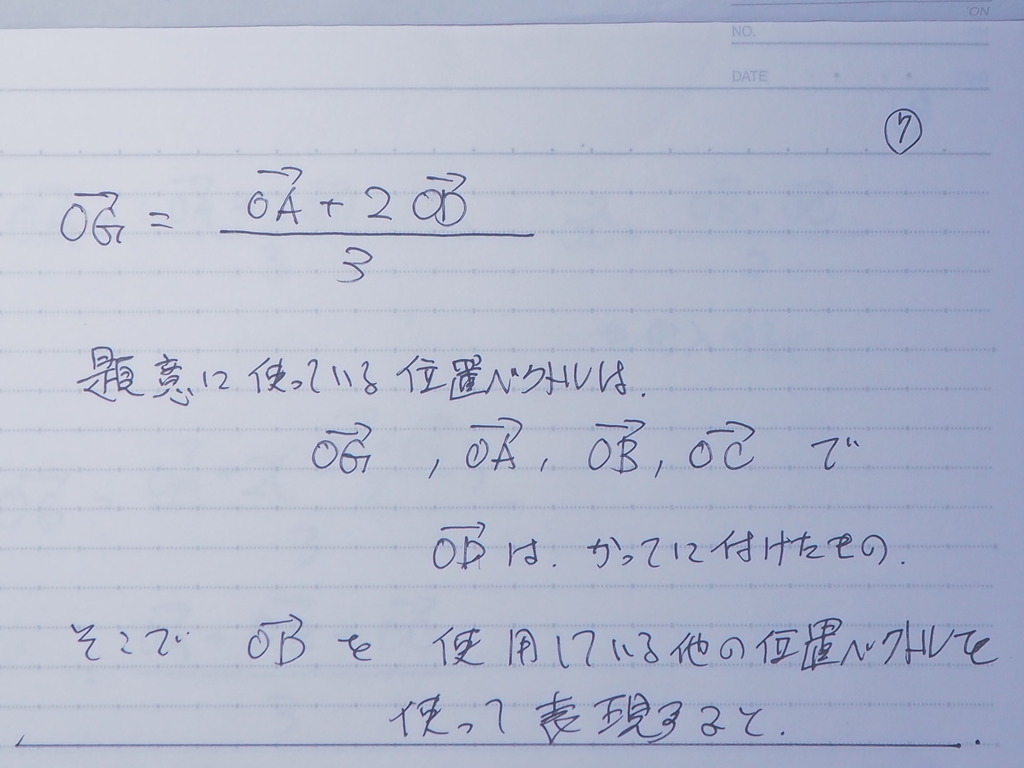 ON
NO.
DATE
⑦
OG→ = (OA→ + 2 OD→) / 3
題意に使っている位置ベクトルは.
OG→ , OA→, OB→, OC→ で
OD→は. かってに付けたもの.
そこで OD→ を 使用している他の位置ベクトルを
使って表現すると.